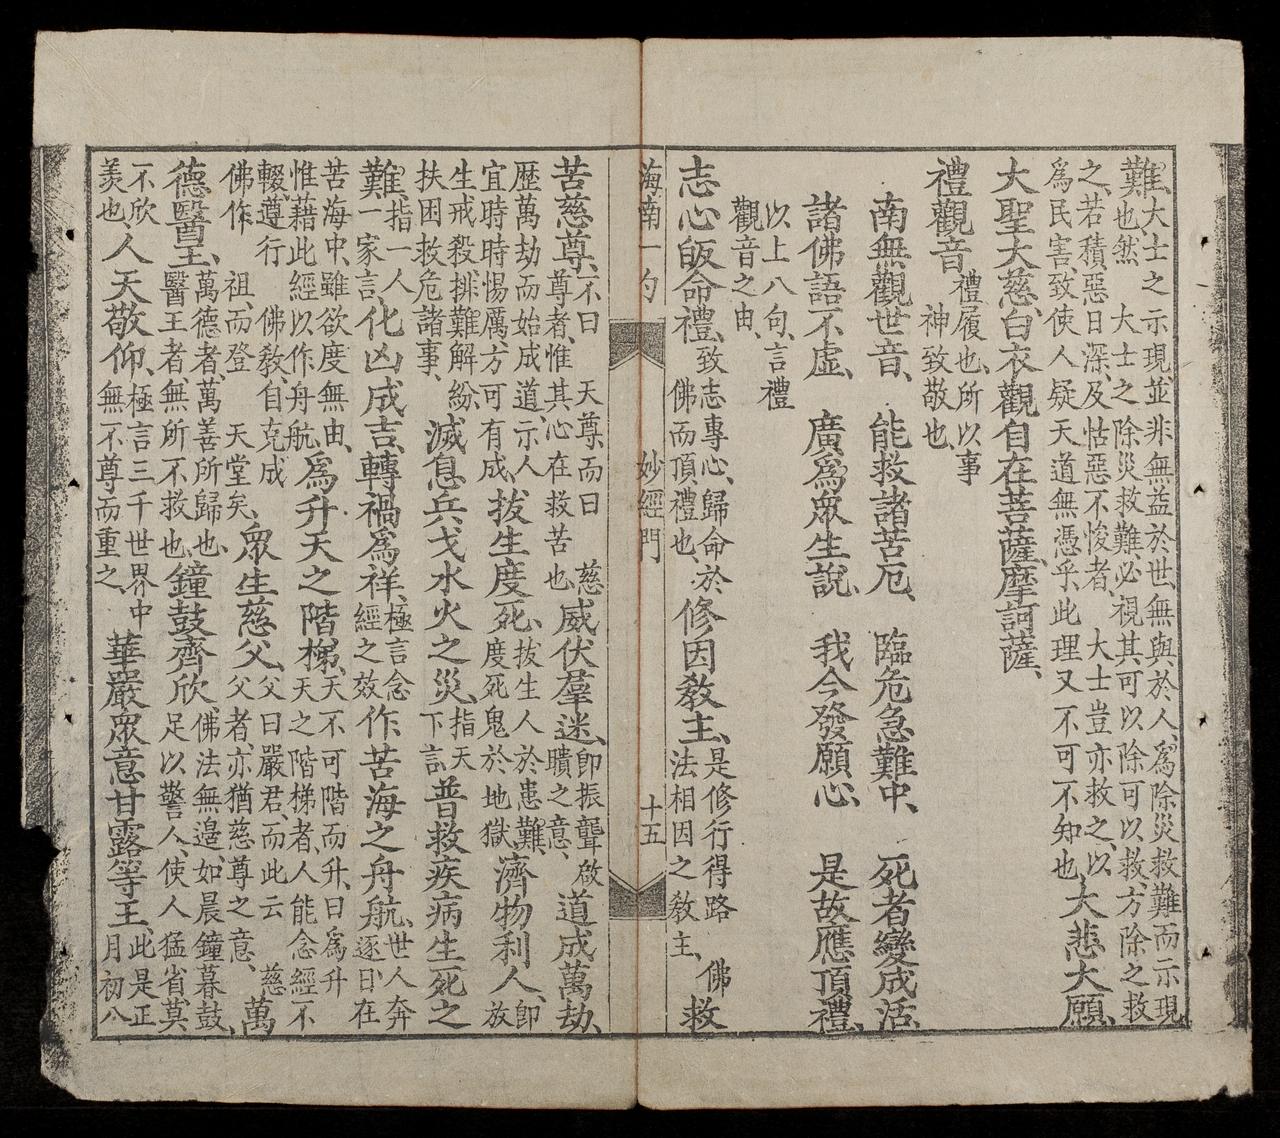 難、大士之示現並非無益於世無與於人、爲除災救難而示現
也然 大士之除災救難、必視其可以除可以救、方除之救
之、若積惡日深、及怙惡不悛者、 大士豈亦救之、以
爲民害、致使人疑天道無憑乎、此理又不可不知也 大悲大願、
大聖大慈、白衣觀自在菩薩摩訶薩、
禮觀音、禮履也、所以事
神致敬也、
南無觀世音、 能救諸苦厄、 臨危急難中、 死者變成活、
諸佛語不虛、 廣爲衆生說、 我今發願心、 是故應頂禮、
以上八句、言禮
觀音之由、
志心皈命禮、致志專心、歸命於 佛而頂禮也、修因敎主、是修行得路 佛法相因之敎主、救
海南一勺 妙經門 十五
苦慈尊、不曰 天尊、而曰 慈尊者、惟其心在救苦也 威伏羣迷、卽振聾啟聵之意、道成萬劫、
歷萬劫而始成道、示人宜時時惕厲、方可有成、拔生度死、拔生人於患難、度死鬼於地獄、濟物利人、卽放
生戒殺排難解紛、扶困救危諸事、滅息兵戈水火之災、指天下言 普救疾病生死之
難、指一人一家言 化凶成吉、轉禍爲祥、極言念經之效 作苦海之舟航、世人奔逐、日在
苦海中、雖欲度無由、惟藉此經以作舟航、爲升天之階梯、天不可階而升、曰爲升天之階梯者、人能念經不
輟、遵行 佛敎、自克成佛作 祖、而登 天堂矣、衆生慈父、父曰嚴君、而此云 慈父者、亦猶慈尊之意、萬
德醫王、萬德者、萬善所歸也、醫王者、無所不救也、鐘鼓齊欣、佛法無邊、如晨鐘暮鼓、足以警人、使人猛省、莫
不欣羨也、人天敬仰、極言三千世界中無不尊而重之 華嚴衆意甘露等王、此是正月初八